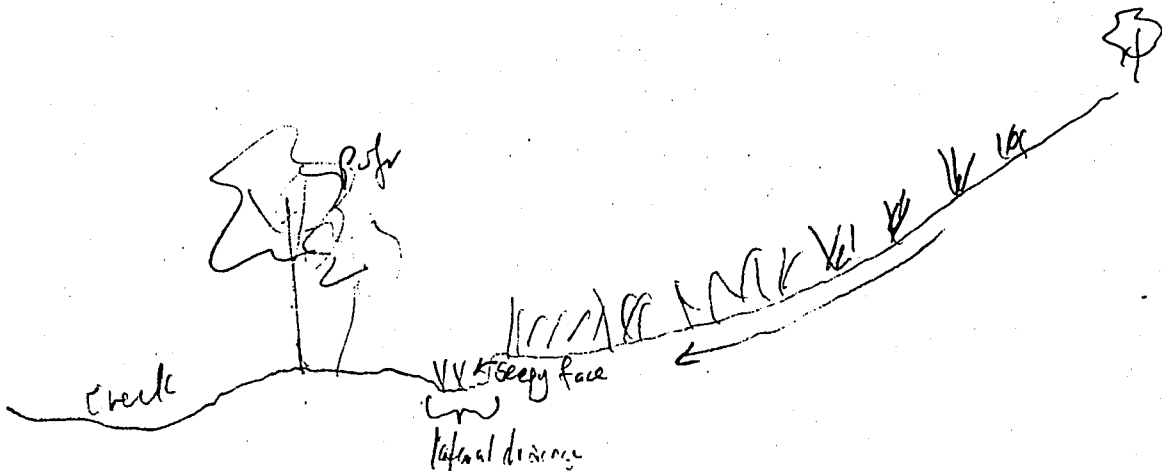 Pofr
Creek
seepy face
lateral drainage